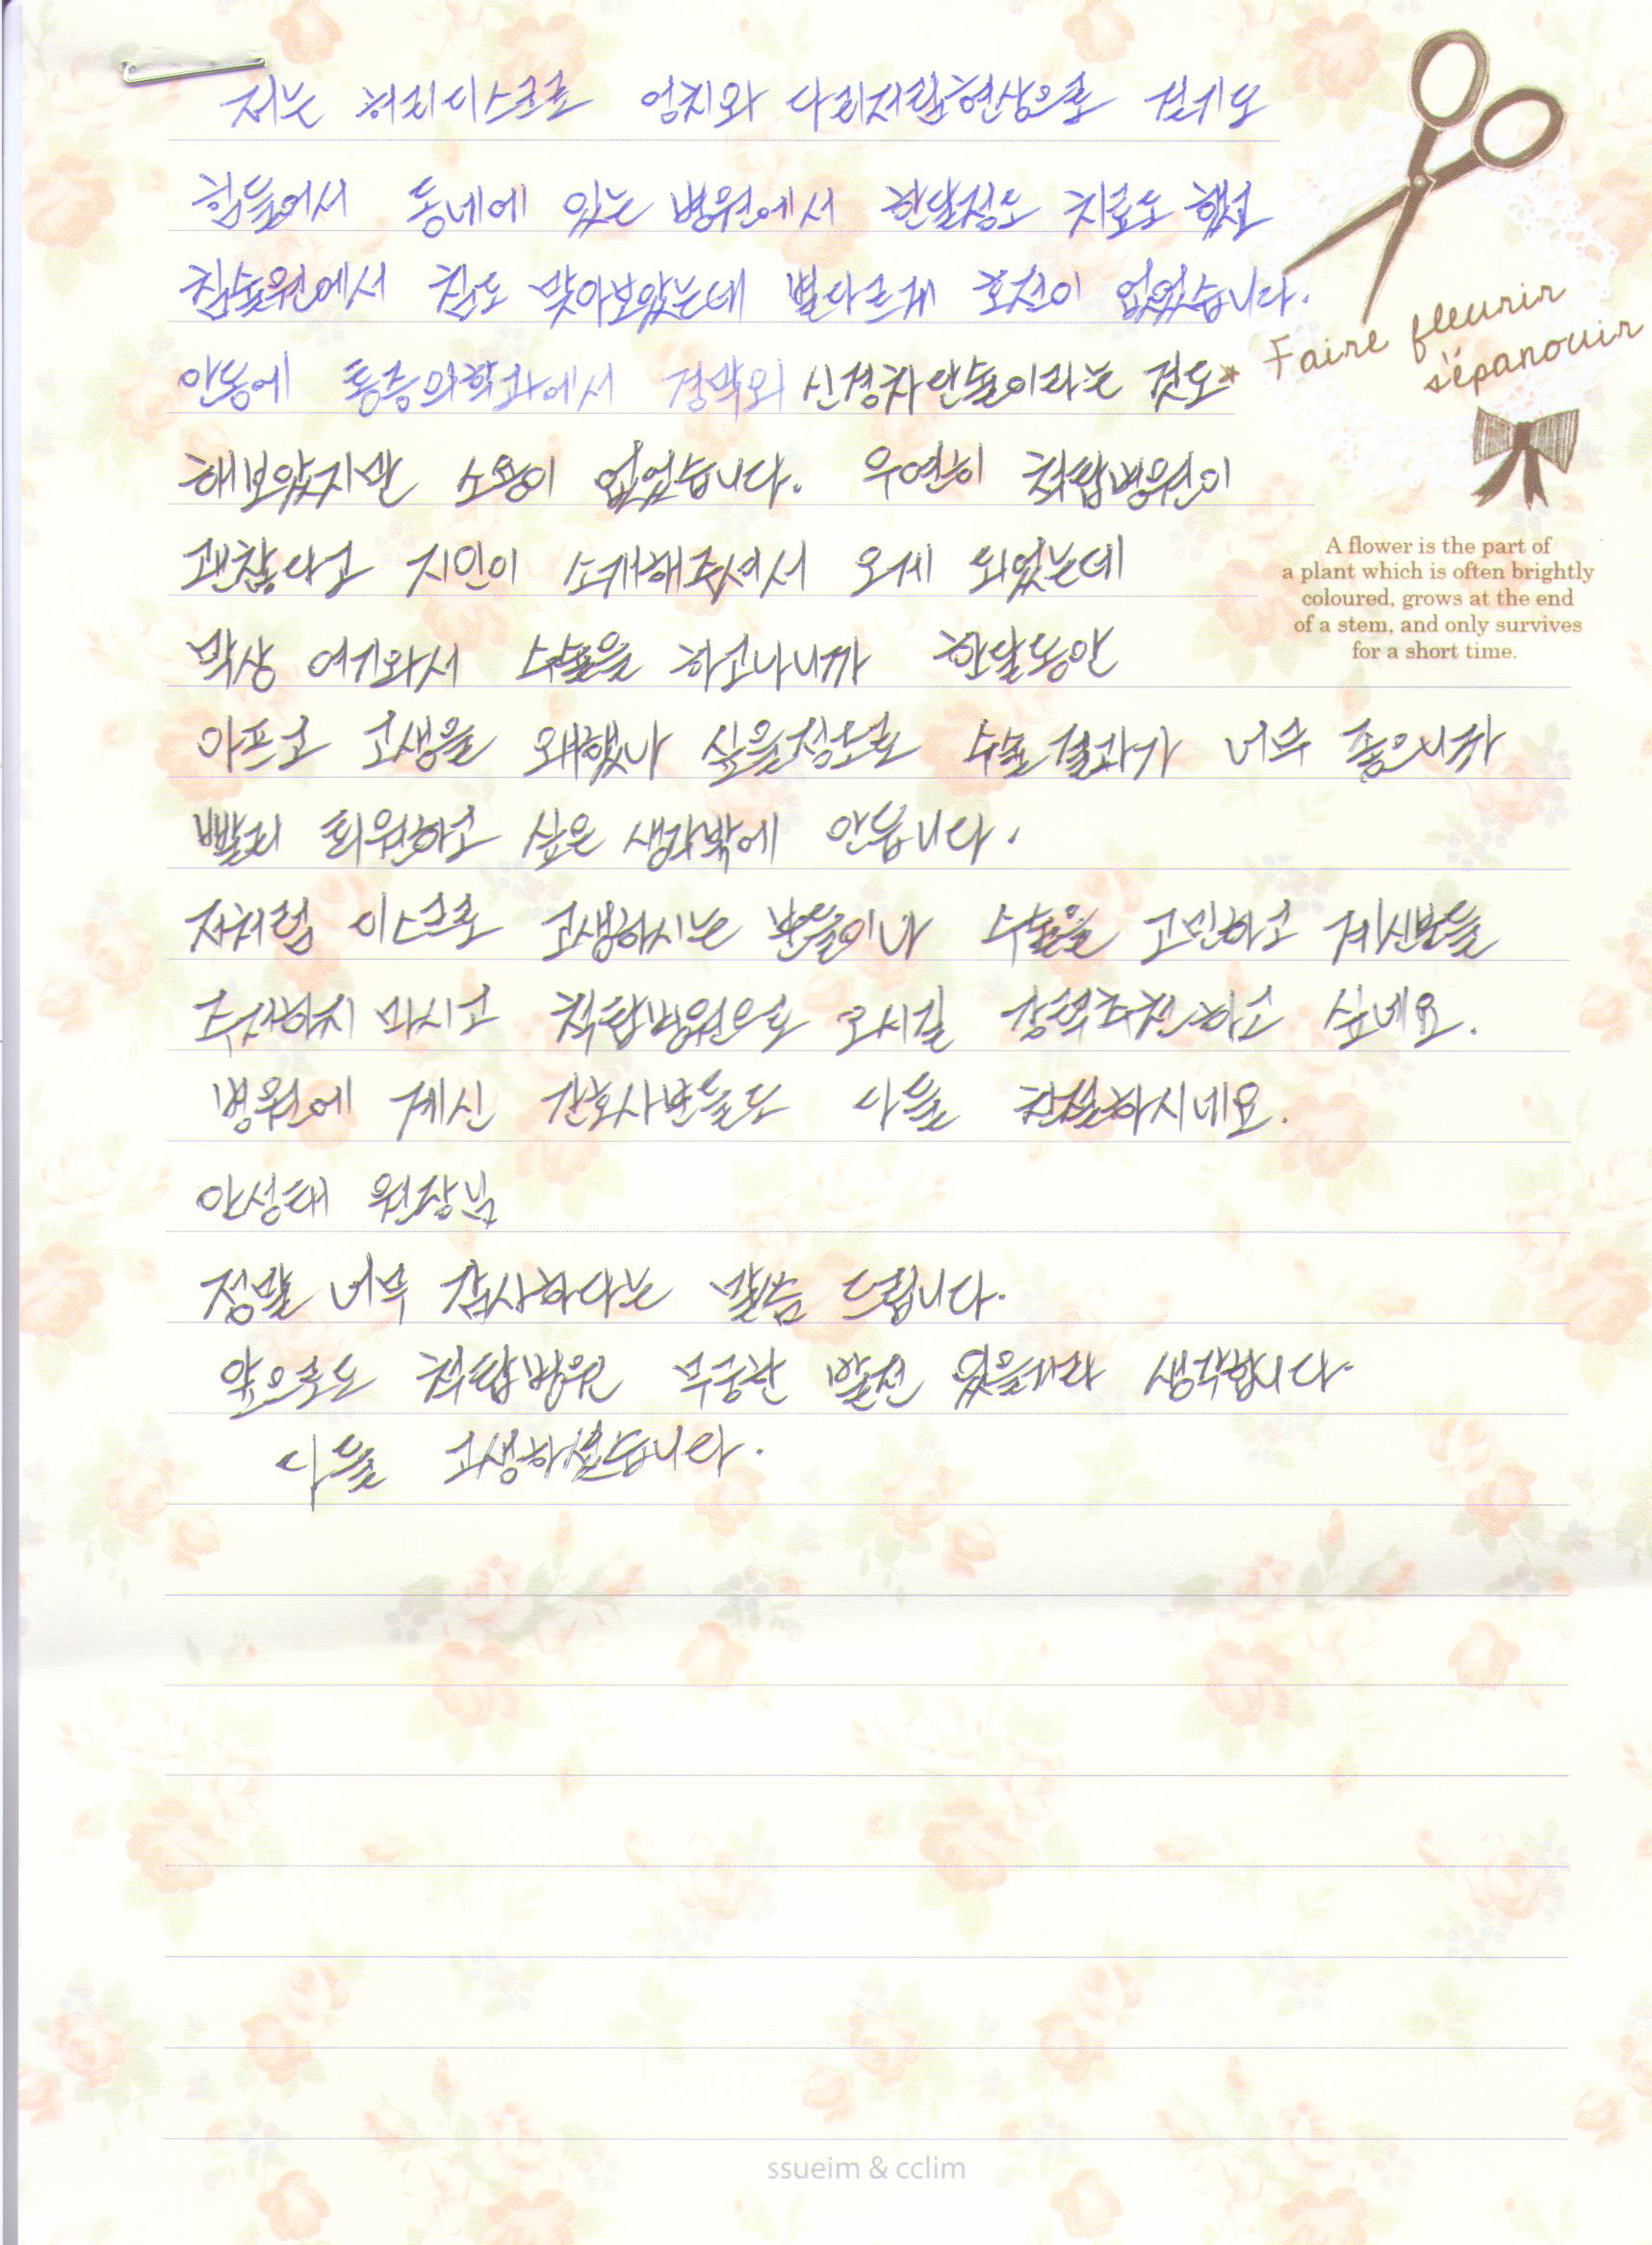 저는 허리디스크로 엉치와 다리저림현상으로 걷기도
힘들어서 동네에 있는 병원에서 한달정도 치료도 했고
침술원에서 침도 맞아보았는데 별다르게 호전이 없었습니다.
안동에 통증의학과에서 경막외 신경차단술이라는 것도
해보았지만 소용이 없었습니다. 우연히 척탑병원이
괜찮다고 지인이 소개해주셔서 오게 되었는데
막상 여기와서 수술을 하고나니까 한달동안
아프고 고생을 왜했나 싶을정도로 수술결과가 너무 좋으니까
빨리 퇴원하고 싶은 생각밖에 안듭니다.
저처럼 디스크로 고생하시는 분들이나 수술을 고민하고 계신분들
주저하지 마시고 척탑병원으로 오시길 강력추천하고 싶네요.
병원에 계신 간호사분들도 다들 친절하시네요.
안성대 원장님
정말 너무 감사하다는 말씀 드립니다.
앞으로도 척탑병원 무궁한 발전 있을거라 생각합니다.
다들 고생하셨습니다.
Faire fleurir
s'épanouir
A flower is the part of
a plant which is often brightly
coloured, grows at the end
of a stem, and only survives
for a short time.
ssueim & cclim